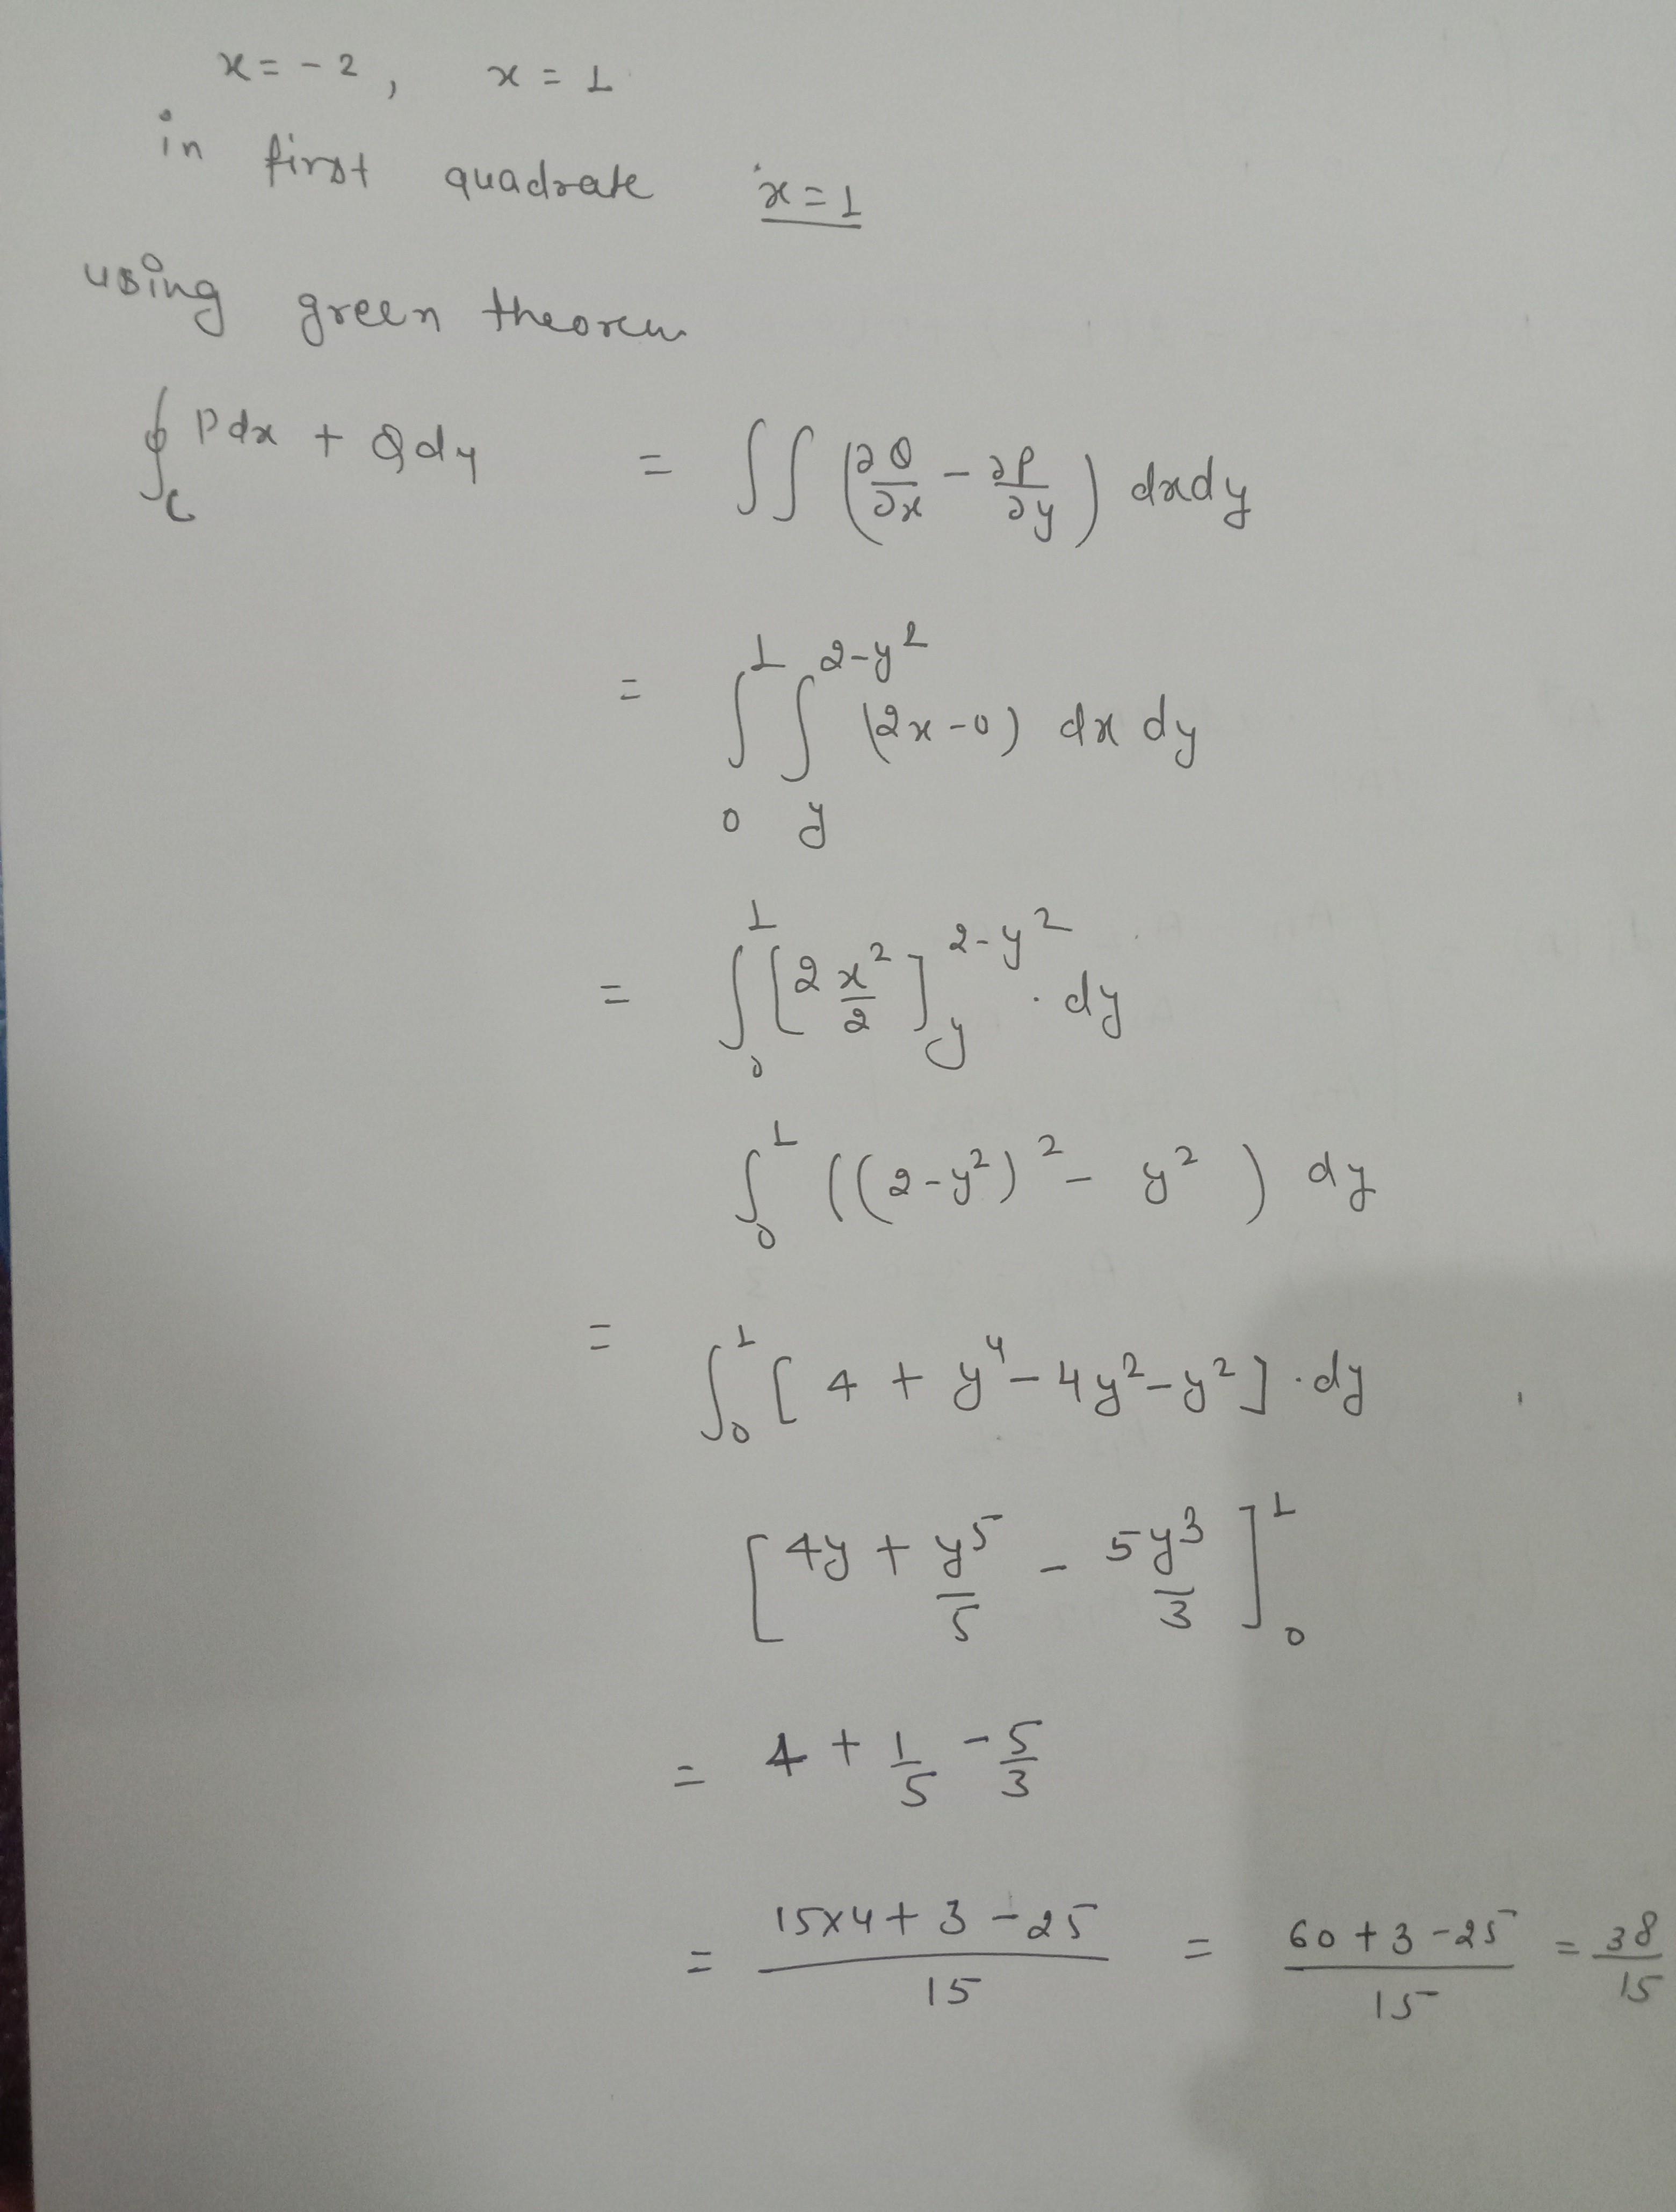 x = - 2 , x = 1
in first quadrate x = 1
using green theorem
∮_C Pdx + Qdy = ∫∫ (∂Q/∂x - ∂P/∂y) dxdy
= ∫_0^1 ∫_y^{2-y^2} (2x-0) dx dy
= ∫_0^1 [2 x^2/2]_y^{2-y^2} . dy
∫_0^1 ((2-y^2)^2 - y^2 ) dy
= ∫_0^1 [ 4 + y^4 - 4y^2 - y^2 ] . dy
[ 4y + y^5/5 - 5y^3/3 ]_0^1
= 4 + 1/5 - 5/3
= (15x4 + 3 - 25)/15 = (60 + 3 - 25)/15 = 38/15